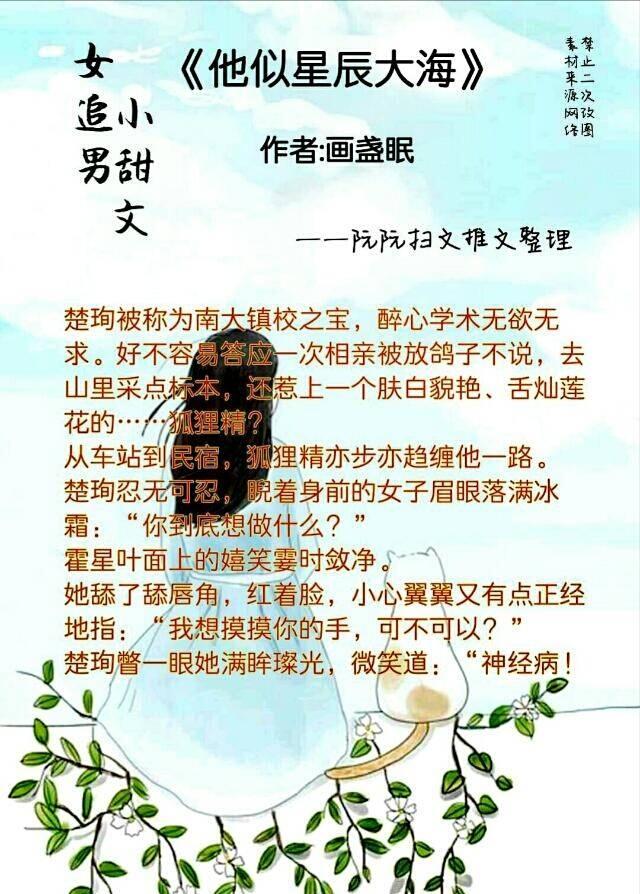 《他似星辰大海》
女追男
小甜文
禁止二次改图
素材来源网络
作者:画盏眠
——阮阮扫文推文整理
楚珣被称为南大镇校之宝，醉心学术无欲无
求。好不容易答应一次相亲被放鸽子不说，去
山里采点标本，还惹上一个肤白貌艳、舌灿莲
花的……狐狸精？
从车站到民宿，狐狸精亦步亦趋缠他一路。
楚珣忍无可忍，睨着身前的女子眉眼落满冰
霜：“你到底想做什么？”
霍星叶面上的嬉笑霎时敛净。
她舔了舔唇角，红着脸，小心翼翼又有点正经
地指：“我想摸摸你的手，可不可以？”
楚珣瞥一眼她满眸璨光，微笑道：“神经病！